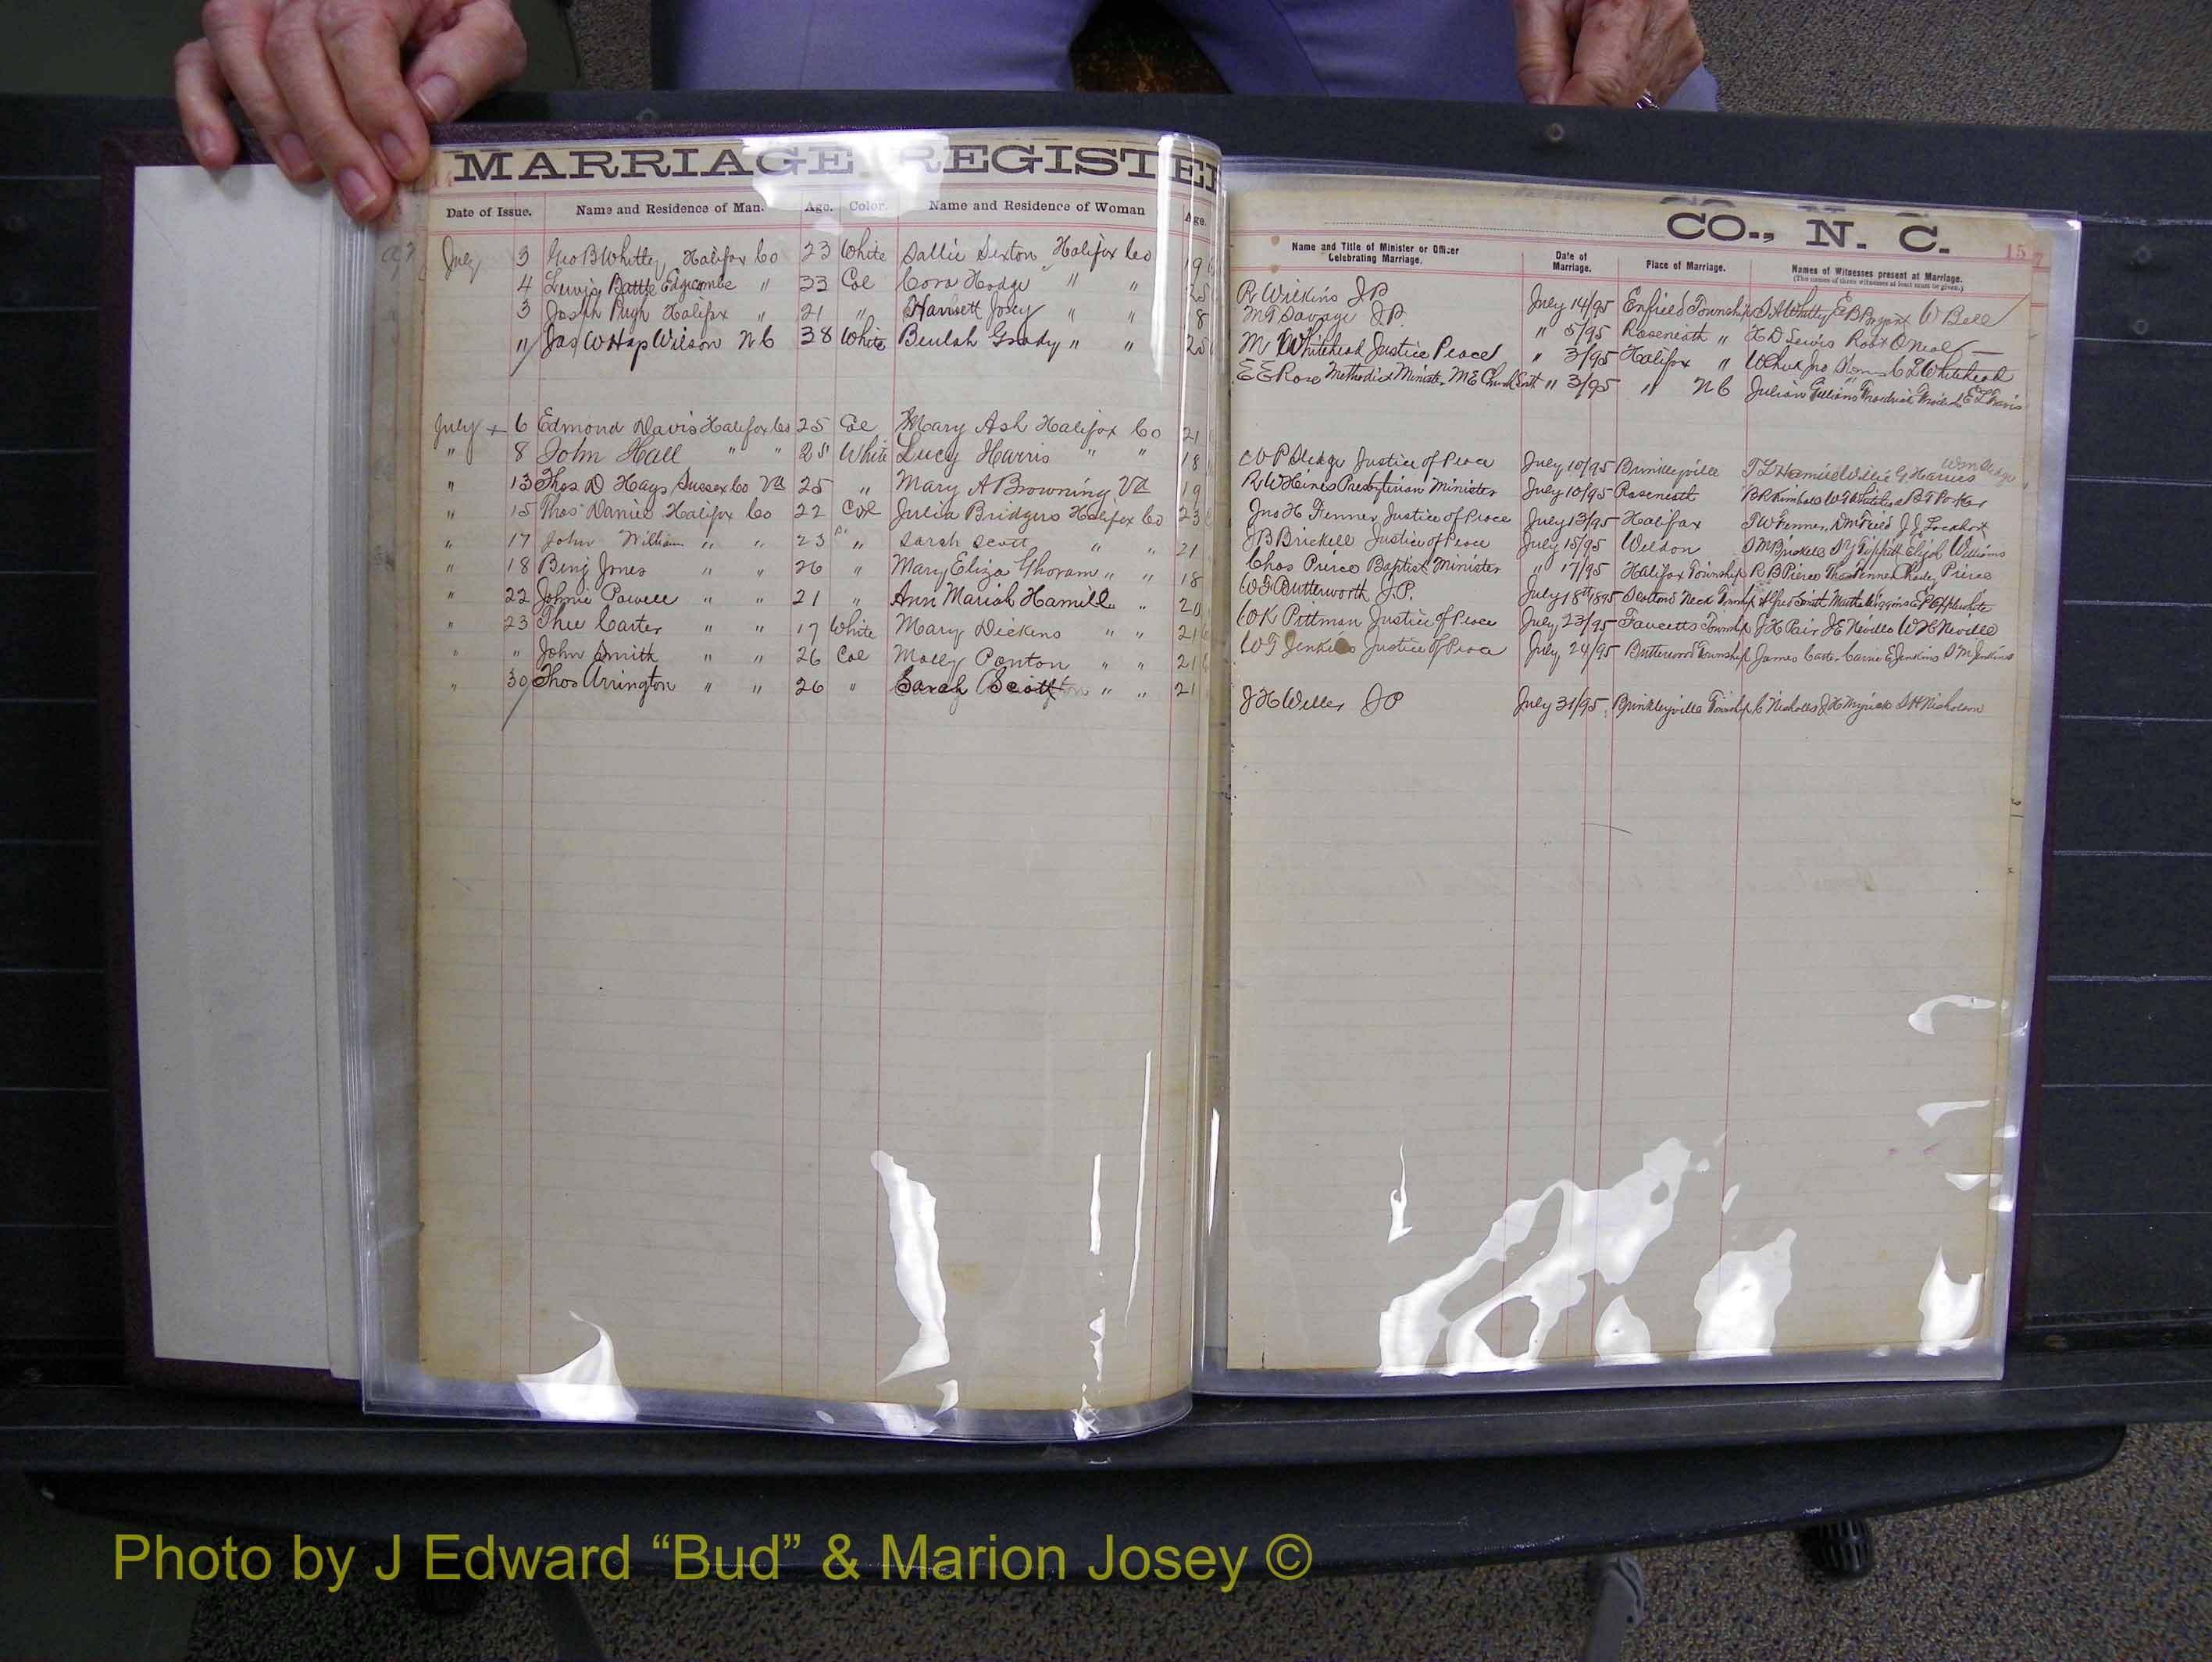 MARRIAGE REGISTER
Date of Issue. Name and Residence of Man. Age. Color. Name and Residence of Woman Age.
July 3 Geo B Whitley, Halifax Co 23 White Sallie Sexton Halifax Co 19
4 Lewis Battle Edgecombe " 23 Col Cora Hodge " " 25
3 Joseph Pugh Halifax " 21 " Harriett Josey " " 18
" Jas W Hap Wilson N C 38 White Beulah Grady " " 25
July + 6 Edmond Davis Halifax Co 25 Col Mary Ash Halifax Co 21
" 8 John Hall " " 25 White Lucy Harris " " 18
" 13 Thos D Hays Sussex Co Va 25 " Mary A Browning Va 19
" 15 Thos Daniel Halifax Co 22 Col Julia Bridgers Halifax Co 23
" 17 John William " " 23 " Sarah Scott " " 21
" 18 Benj Jones " " 26 " Mary Eliza " " 18
" 22 Johnie Powell " " 21 " Ann Mariah Hamill " " 20
" 23 Thee Carter " " 17 White Mary Dickens " " 21
" " John Smith " " 26 Col Molly Ponton " " 21
" 30 Thos Arrington " " 26 " Sarah " " 21
CO., N. C.
157
Name and Title of Minister or Officer Celebrating Marriage. Date of Marriage. Place of Marriage. Names of Witnesses present at Marriage.
(The names of three witnesses at least must be given.)
R Wilkins J P July 14/95 Enfield Township E B Bryant W Bell
M T Savage J.P. " 5/95 Roseneath " H D Lewis Robt O Neal
M Whitehead Justice Peace " 3/95 Halifax " C L Whitehead
E E Rose Methodist Minister M E Church South " 3/95 " N C Julian E L Travis
W P Sledge Justice of Peace July 10/95 Brinkleyville T L Hamill Willie G Harris Wm Sledge
R W Hines Presbyterian Minister July 10/95 Roseneath B R Kimball W G Whitehead B T Porter
Jno H Fenner Justice of Peace July 13/95 Halifax T W Fenner, D M Field J J Lockhart
J B Brickell Justice of Peace July 15/95 Weldon Williams
Chas Pierce Baptist Minister " 17/95 Halifax Township R B Pierce Thos Fenner Pierce
W G Butterworth J.P. July 18th 1895 Scotland Neck Township Alfred Smith
W K Pittman Justice of Peace July 23/95 Faucetts Township J H Pair J E Neville W H Neville
W T Jenkins Justice of Peace July 24/95 Butterwood Township James Carter Carrie E Jenkins S M Jenkins
J H Weller J P July 31/95 Brinkleyville Township C Nicholls J H Myrick S H Nicholson
Photo by J Edward “Bud” & Marion Josey ©